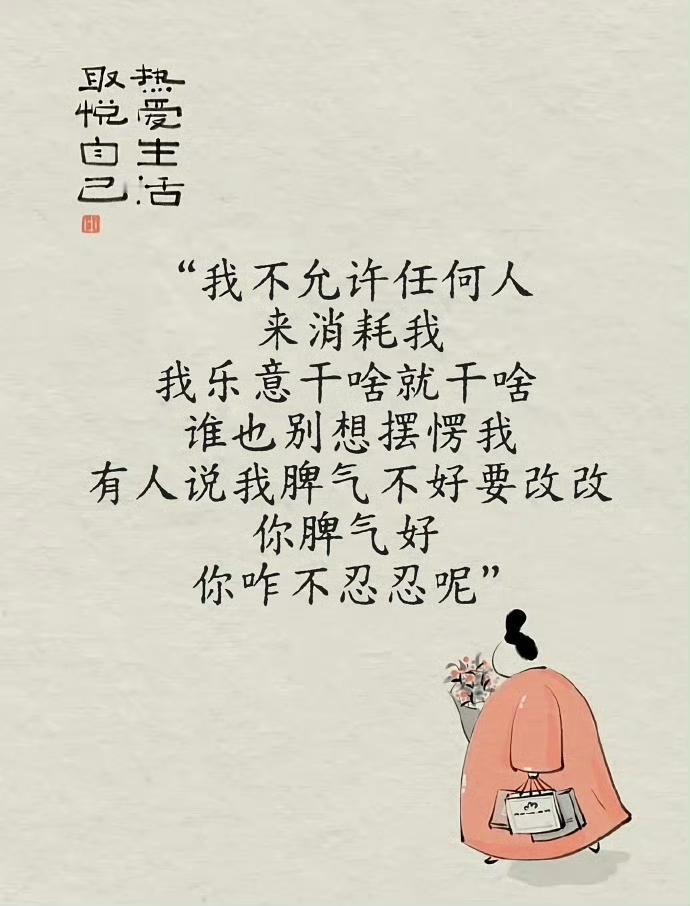 热爱生活
取悦自己
“我不允许任何人
来消耗我
我乐意干啥就干啥
谁也别想摆愣我
有人说我脾气不好要改改
你脾气好
你咋不忍忍呢”